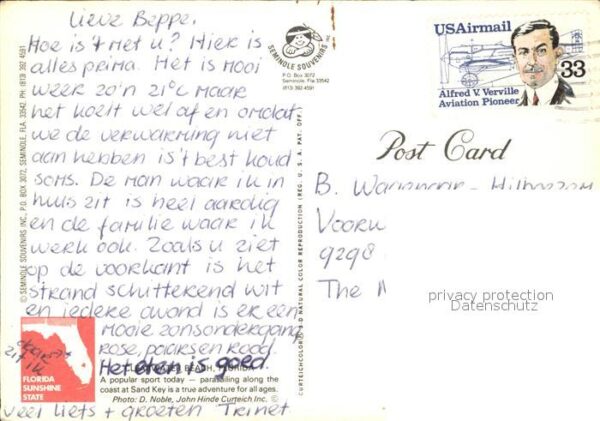 Lieve Beppe,
Hoe is 't met u? Hier is
alles prima. Het is mooi
weer zo'n 21°C maar
het koelt wel af en omdat
we de verwarming niet
aan hebben is 't best koud
soms. De man waar ik in
huis zit is heel aardig
en de familie waar ik
werk ook. Zoals u ziet
op de voorkant is het
strand schitterend wit
en iedere avond is er een
mooie zonsondergang
rose, paars en rood.
Het eten is goed.
daar
zit ik
veel liefs + groeten Trinet.
SEMINOLE SOUVENIRS
P.O. Box 3072
Seminole, Fla 33542
(813) 392 4591
© SEMINOLE SOUVENIRS INC., P.O. BOX 3072, SEMINOLE, FLA. 33542. PH (813) 392 4591
CURTEICHCOLOR® 3-D NATURAL COLOR REPRODUCTION (REG. U.S.A. PAT. OFF.
FLORIDA
SUNSHINE
STATE
CLEARWATER BEACH, FLORIDA
A popular sport today — parasailing along the
coast at Sand Key is a true adventure for all ages.
Photo: D. Noble, John Hinde Curteich Inc. ©
USAirmail
33
Alfred V. Verville
Aviation Pioneer
Post Card
B.
Voor
9298
The
privacy protection
Datenschutz